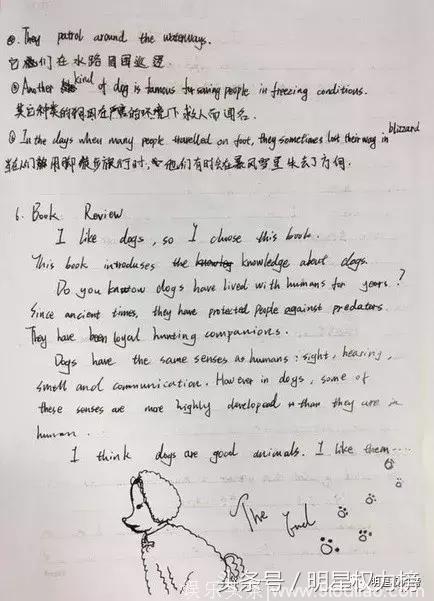 ⊙. They patrol around the waterways.
它们在水路周围巡逻
⊙ Another kind of dog is famous for saving people in freezing conditions.
其它种类的狗因在严寒的环境下救人而闻名.
⊙ In the days when many people travelled on foot, they sometimes lost their way in blizzard
当人们用脚步旅行时, 他们有时会在暴风雪里失去了方向.
6. Book Review
I like dogs, so I choose this book.
This book introduses the knowledge about dogs.
Do you know dogs have lived with humans for years?
Since ancient times, they have protected people against predators.
They have been loyal hunting companions.
Dogs have the same senses as humans: sight, hearing,
smell and communication. However in dogs, some of
these senses are more highly developed than they are in
human...
I think dogs are good animals. I like them....
The End
头条号/明星权力榜